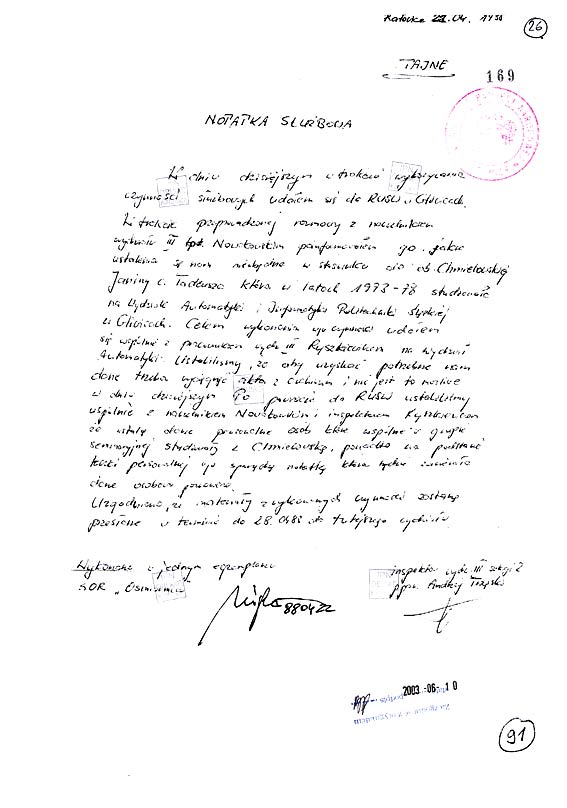 Katowice 22.04. 1988
26
TAJNE
169
NOTATKA SŁUŻBOWA
W dniu dzisiejszym w trakcie wykonywania
czynności służbowych udałem się do RUSW w Gliwicach.
W trakcie przeprowadzonej rozmowy z naczelnikiem
wydziału III Nowakowskim poinformowałem go jakie
ustalenia są nam niezbędne w stosunku do ob. Chmielowskiej
Janiny c. Tadeusza która w latach 1973-78 studiowała
na Wydziale Automatyki i Informatyki Politechniki Śląskiej
w Gliwicach. Celem wykonania tych czynności udałem
się wspólnie z pracownikiem wydz. III na wydział
Automatyki. Ustaliliśmy, że aby uzyskać potrzebne nam
dane trzeba wyciągnąć akta z archiwum i nie jest to możliwe
w dniu dzisiejszym. Po powrocie do RUSW ustaliliśmy
wspólnie z naczelnikiem i inspektorem
że ustalą dane personalne osób które wspólnie w grupie
seminaryjnej studiowały z Chmielowską, ponadto na podstawie
teczki personalnej sporządzą notatkę która będzie zawierała
dane osobowe
Uzgodniono, że materiały z wykonanych czynności zostaną
przesłane w terminie do 28.04.88 do tutejszego wydziału.
Wykonano w jednym egzemplarzu
SOR "Ośmiornica"
880422
inspektor wydz. III sekcji 2
ppor. Andrzej
2003-06-10
Za zgodność z oryginałem
91